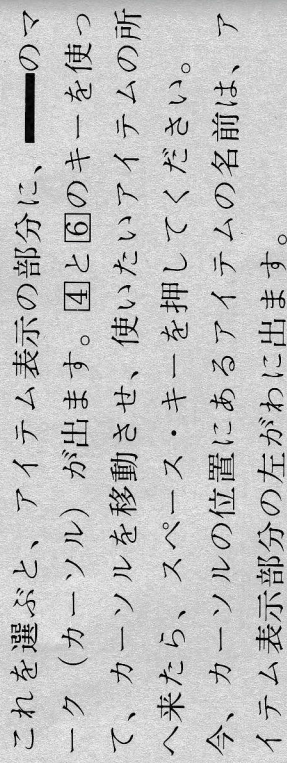 これを選ぶと、アイテム表示の部分に、━━のマ
ーク（カーソル）が出ます。4と6のキーを使っ
て、カーソルを移動させ、使いたいアイテムの所
へ来たら、スペース・キーを押してください。
今、カーソルの位置にあるアイテムの名前は、ア
イテム表示部分の左がわに出ます。